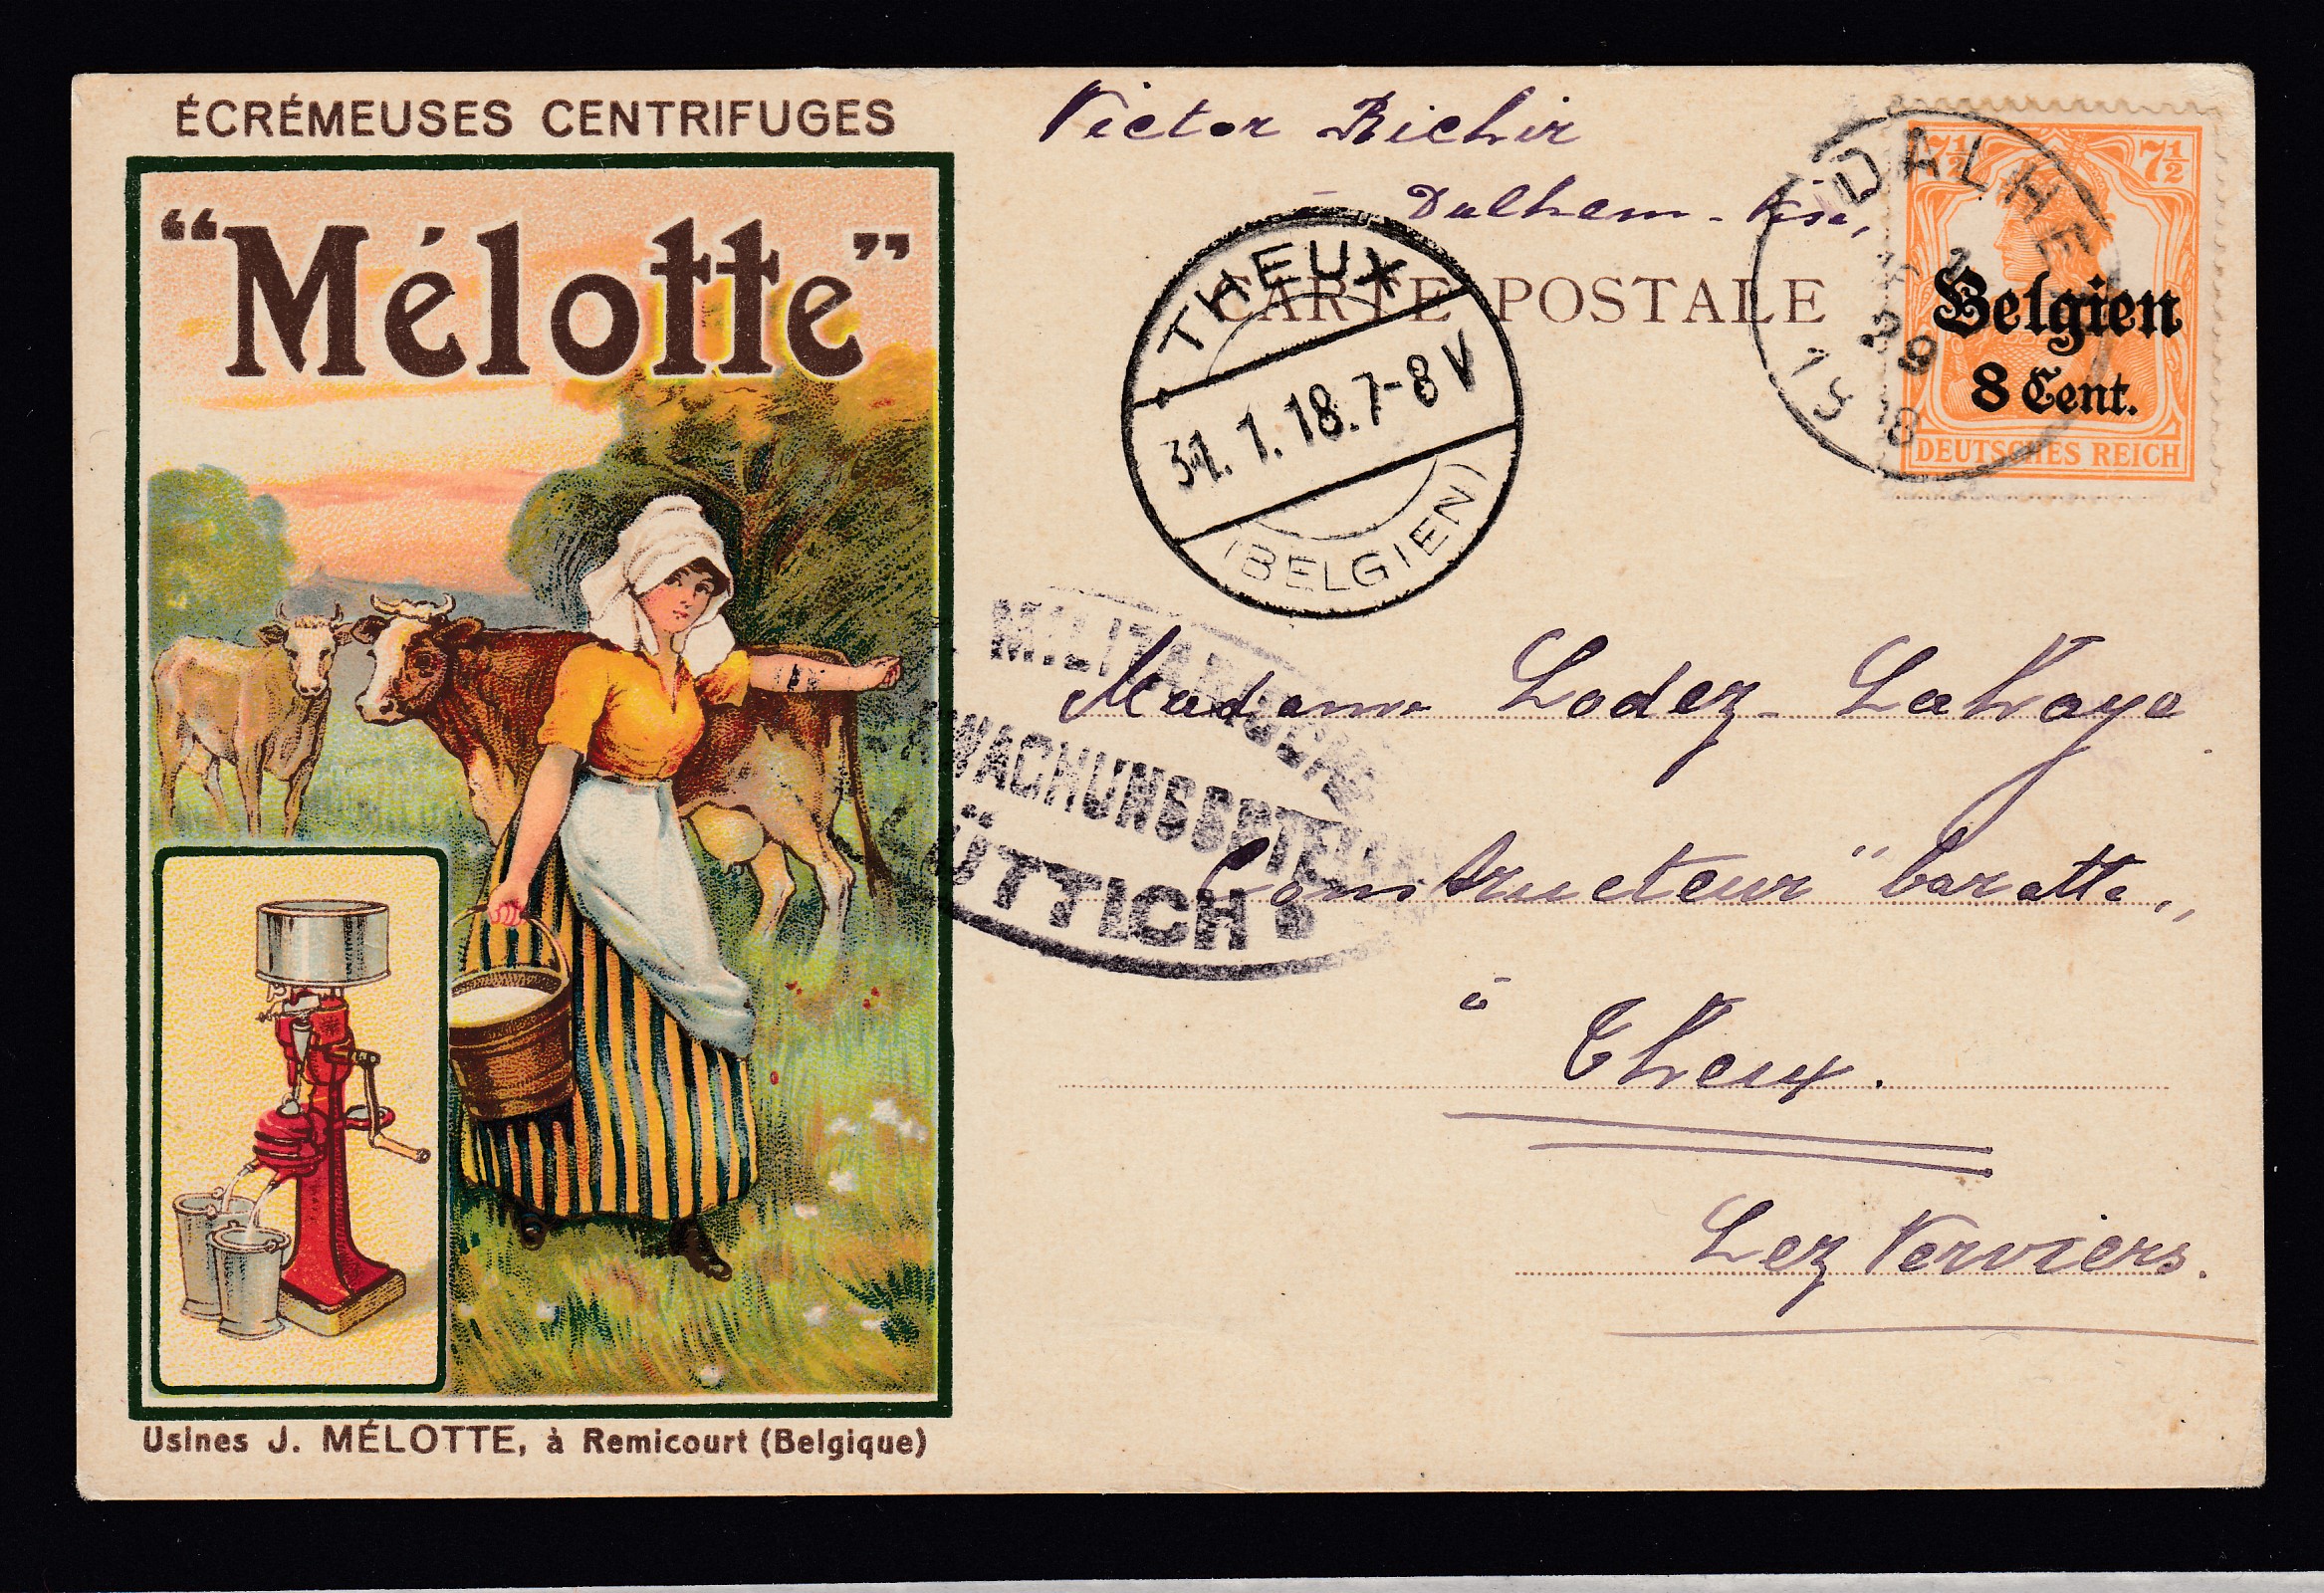 ÉCRÉMEUSES CENTRIFUGES
“Mélotte”
Usines J. MÉLOTTE, à Remicourt (Belgique)
Victor Richir
à Dalhem - Visé,
CARTE POSTALE
THEUX
31. 1. 18. 7-8 V
(BELGIEN)
DALHE
1
29
15 18
7½ 7½
Belgien
8 Cent.
DEUTSCHES REICH
MILITÄRISCHE
WACHUNGSSTELLE
ÜTTICH
Madame Lodez - Lahaye
Constructeur "baratte"
à
Theux.
Lez Verviers.